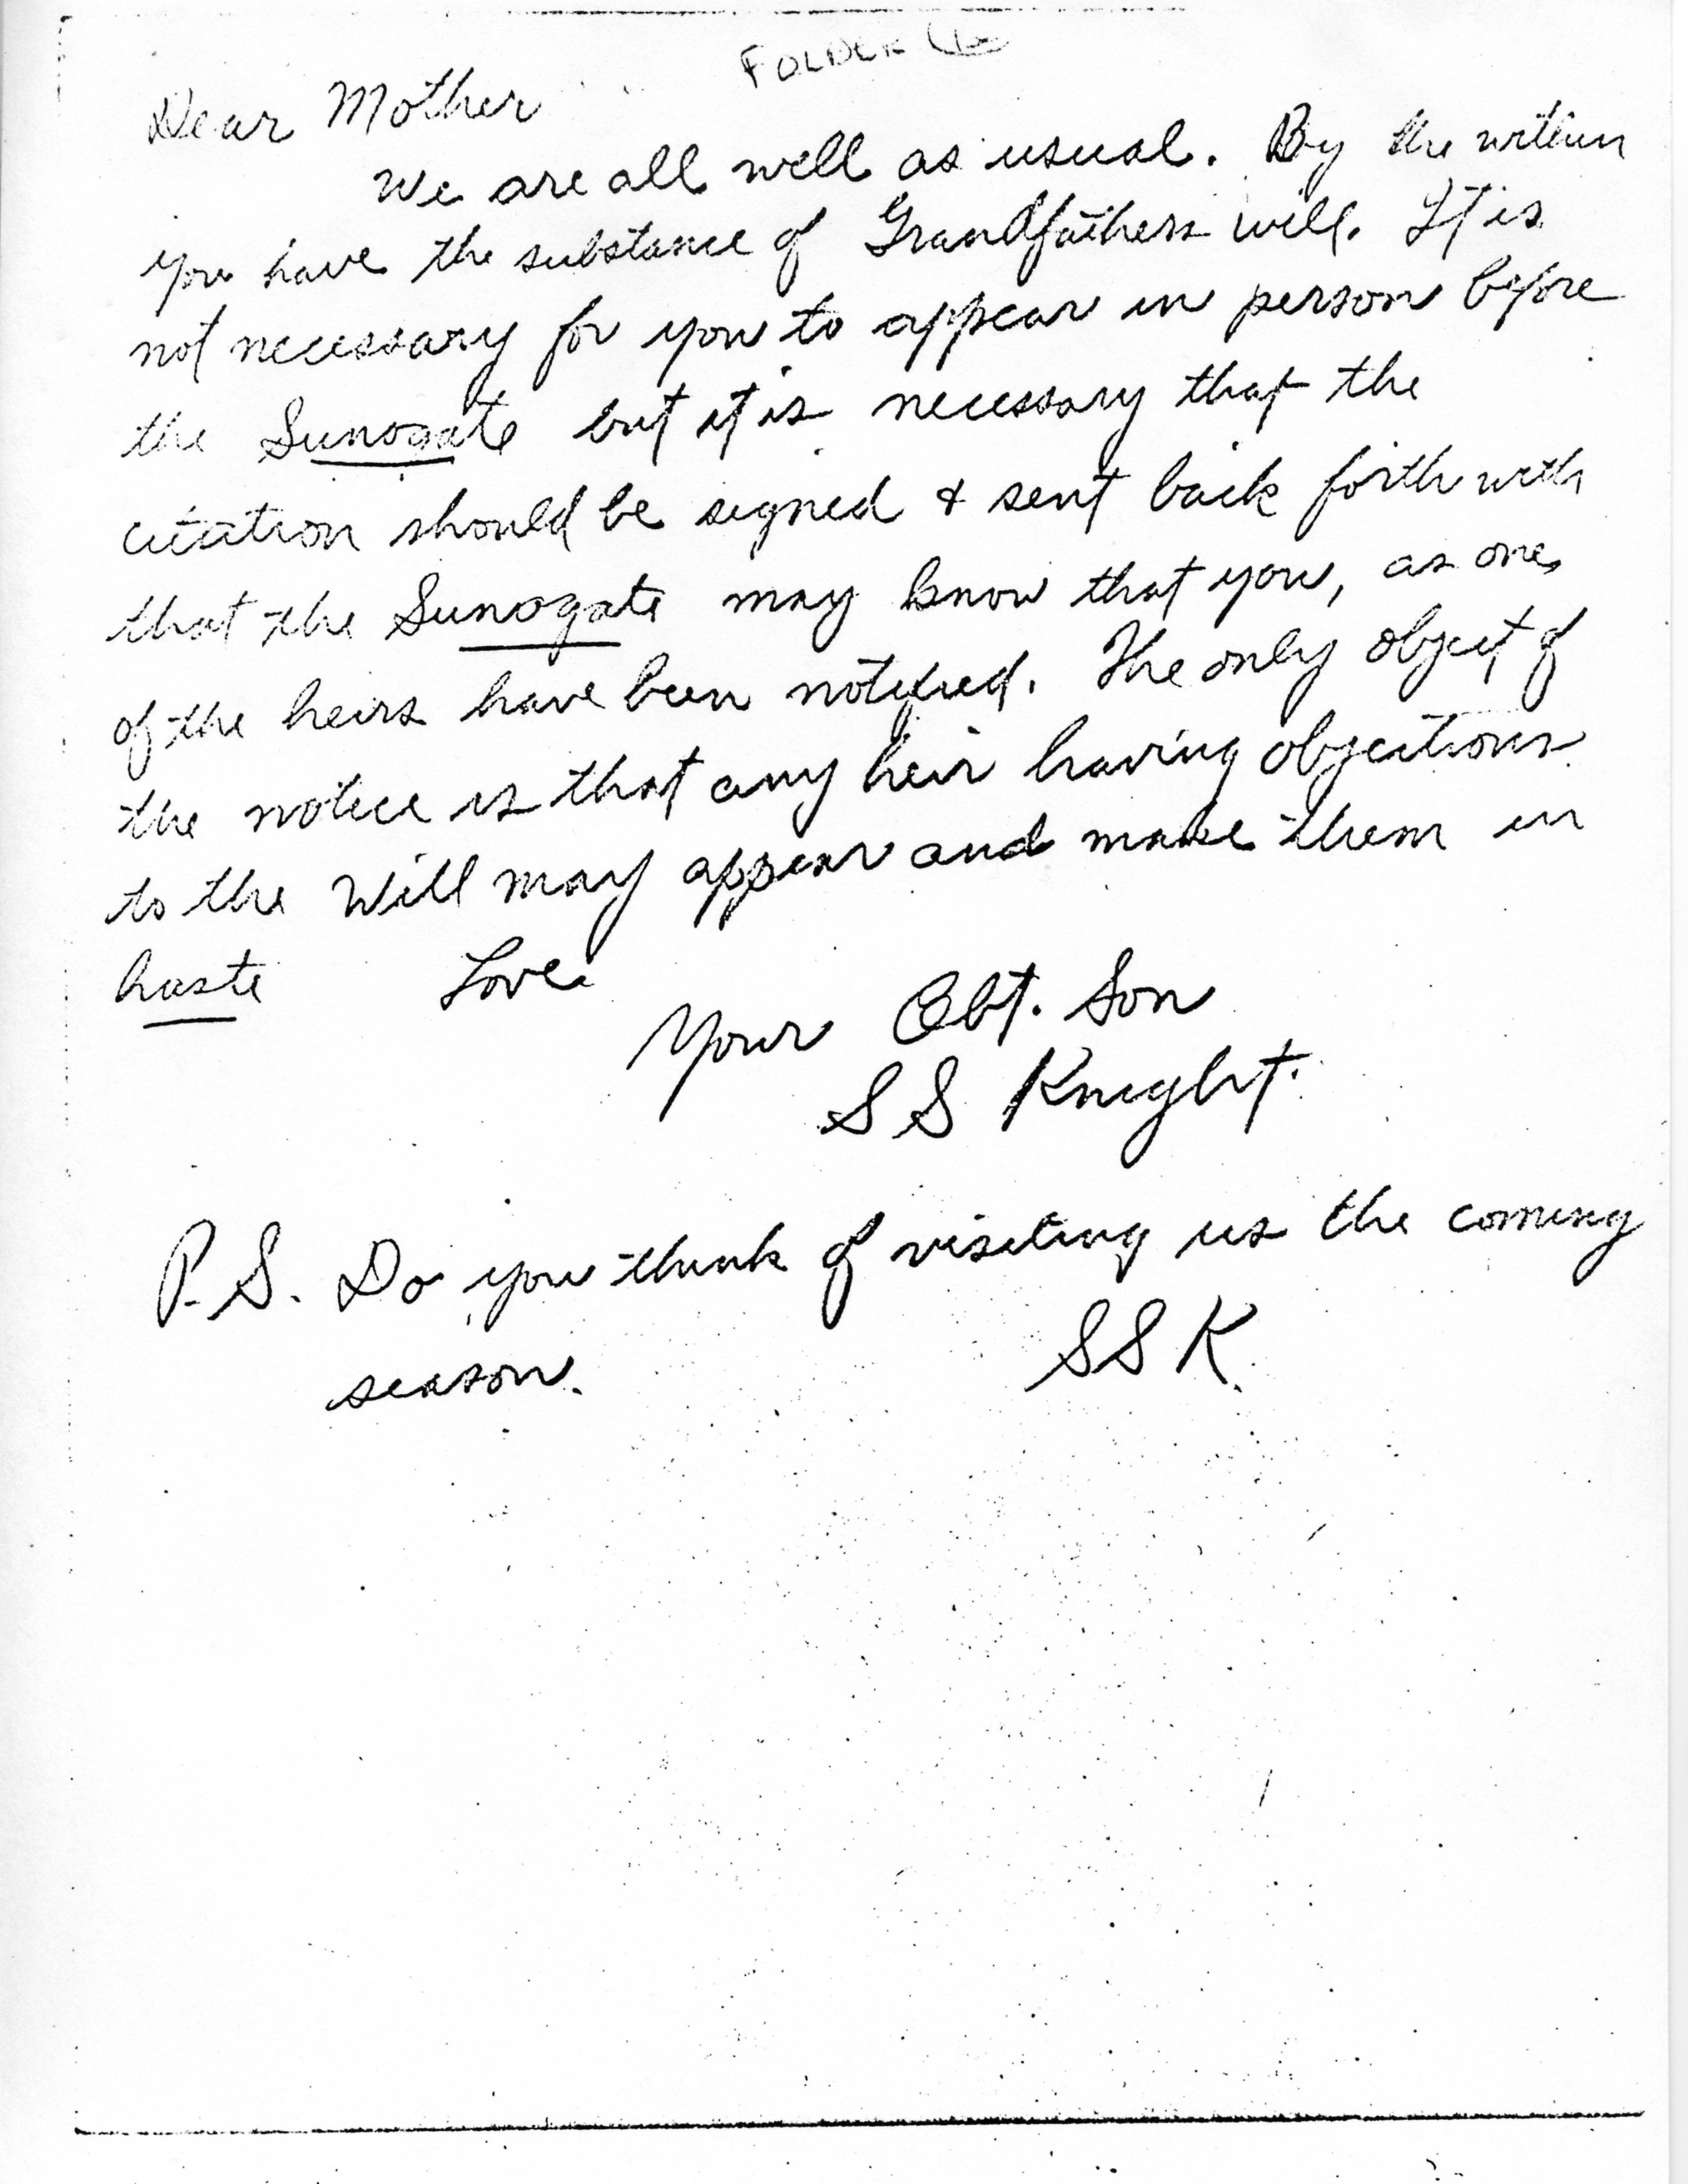 FOLDER
Dear Mother
We are all well as usual. By the within
you have the substance of Grandfathers will. It is
not necessary for you to appear in person before
the Sunogate but it is necessary that the
citation should be signed & sent back forth with
that the Sunogate may know that you, as one
of the heirs have been notified. The only object of
the notice is that any heir having objections
to the Will may appear and make them in
haste Love
Your Obt. Son
S S Knight.
P. S. Do you think of visiting us the coming
season.
SSK.